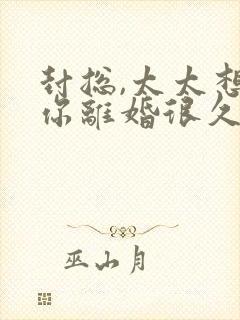 封总,太太想
你離婚很久
巫山月